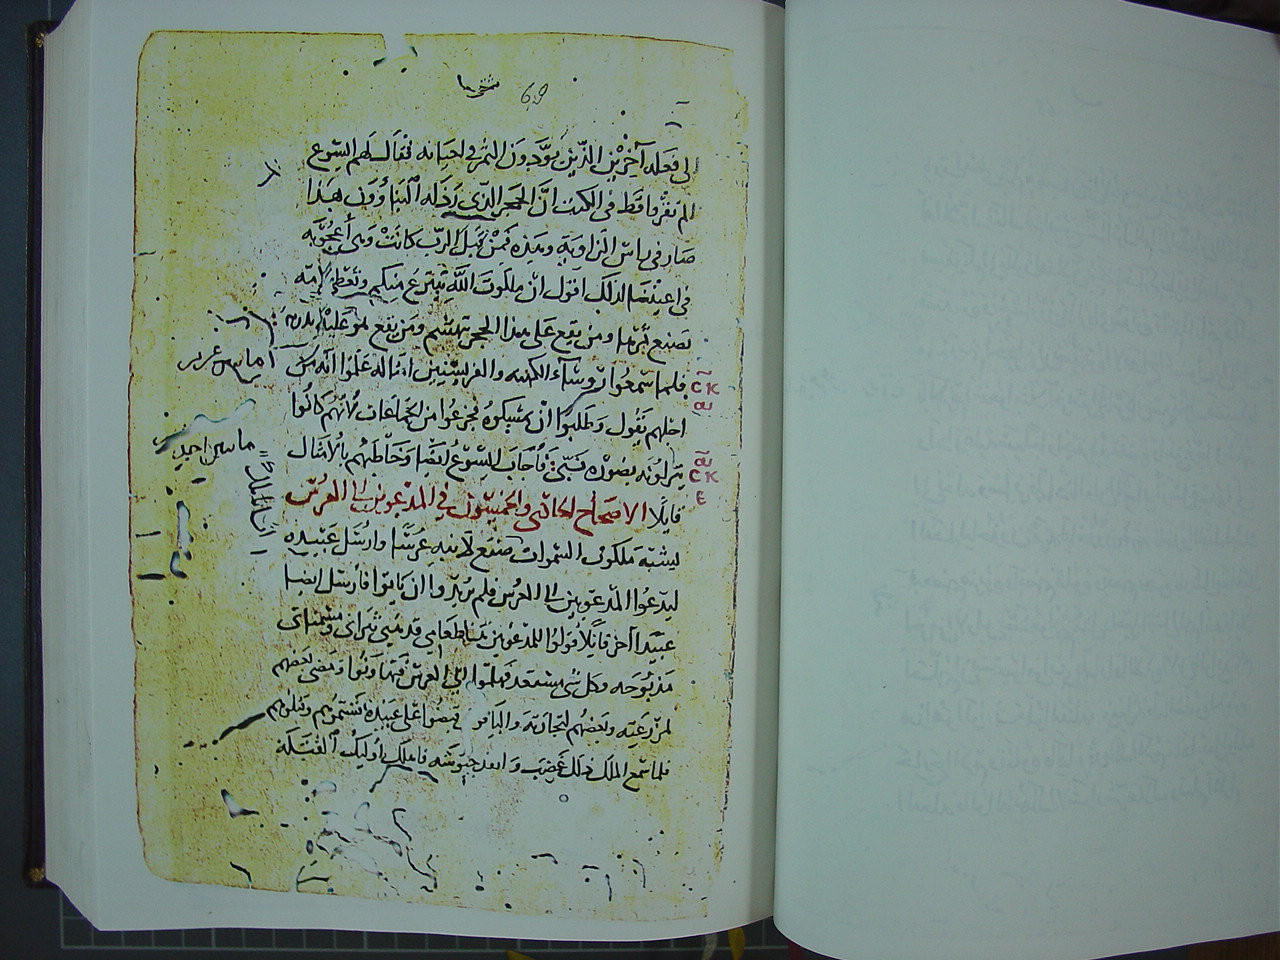 69
الى فعله آخرين الذين يؤدون الثمر في احيانه فقال لهم ايسوع
الم تقروا قط في الكتب ان الحجر الذى رذله البناوون هذا
صار في راس الزاوية وهذه فمن قبل الرب كانت وهى أعجوبه
في اعيننا لذلك اقول ان ملكوت الله تنتزع منكم وتعطى لامه
يصنع ثمرها ومن يقع على هذا الحجر تهشم ومن يقع هو عليه
فلما سمعوا روساء الكهنه والفريسيين امثاله علموا انه من
اجلهم يقول وطلبوا ان يمسكوه فجزعوا من الجماعات لانهم كانوا
ينزلونه بصورة نبي فأجاب ايسوع ايضا وخاطبهم بالامثال
قايلا الاصحاح الحادى والخمسون في المدعوين الى العرس
ليشبه ملكوت السموات صنع لابنه عرسًا وارسل عبيده
ليدعوا المدعوين الى العرس فلم يريدوا ان ياتوا فأرسل ايضا
عبيدًا آخر قايلا قولوا للمدعوين طعامى قد هيى ثيرانى ومسمناتى
مذبوحه وكل شى مستعد فهلموا الى العرس فتهاونوا ومضى بعضهم
لمزرعته وبعضهم لتجارته والباقون قبضوا على عبيده فشتموهم وقتلوهم
فلما سمع الملك ذلك غضب وانفد جيوشه فاهلك أوليك القتلة